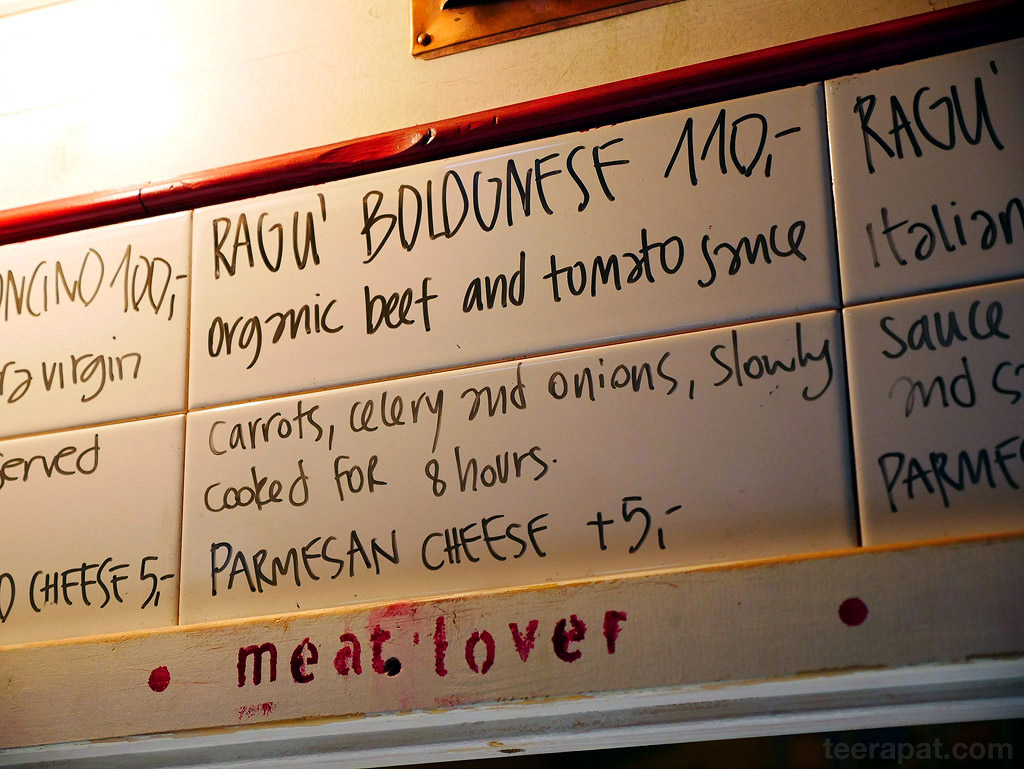 ONCINO 100,-
ra virgin
served
CHEESE 5,-
RAGU' BOLOGNESE 110,-
organic beef and tomato sauce
carrots, celery and onions, slowly
cooked for 8 hours.
PARMESAN CHEESE +5,-
RAGU'
Italian
sauce
and
PARMES
meat lover
teerapat.com